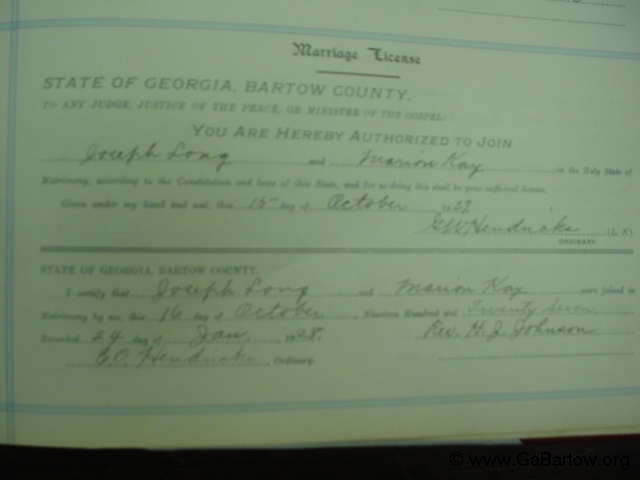 Marriage License
STATE OF GEORGIA, BARTOW COUNTY.
TO ANY JUDGE, JUSTICE OF THE PEACE, OR MINISTER OF THE GOSPEL:
YOU ARE HEREBY AUTHORIZED TO JOIN
Joseph Long and Marion Kay in the Holy State of
Matrimony, according to the Constitution and laws of this State, and for so doing this shall be your sufficient license.
Given under my hand and seal, this 15 day of October 1927
G W Hendricks (L. S.)
ORDINARY.
STATE OF GEORGIA, BARTOW COUNTY.
I certify that Joseph Long and Marion Kay were joined in
Matrimony by me, this 16 day of October, Nineteen Hundred and Twenty Seven
Recorded 24 day of Jan, 1928. Rev. H. J. Johnson
Hendricks, Ordinary.
© www.GaBartow.org